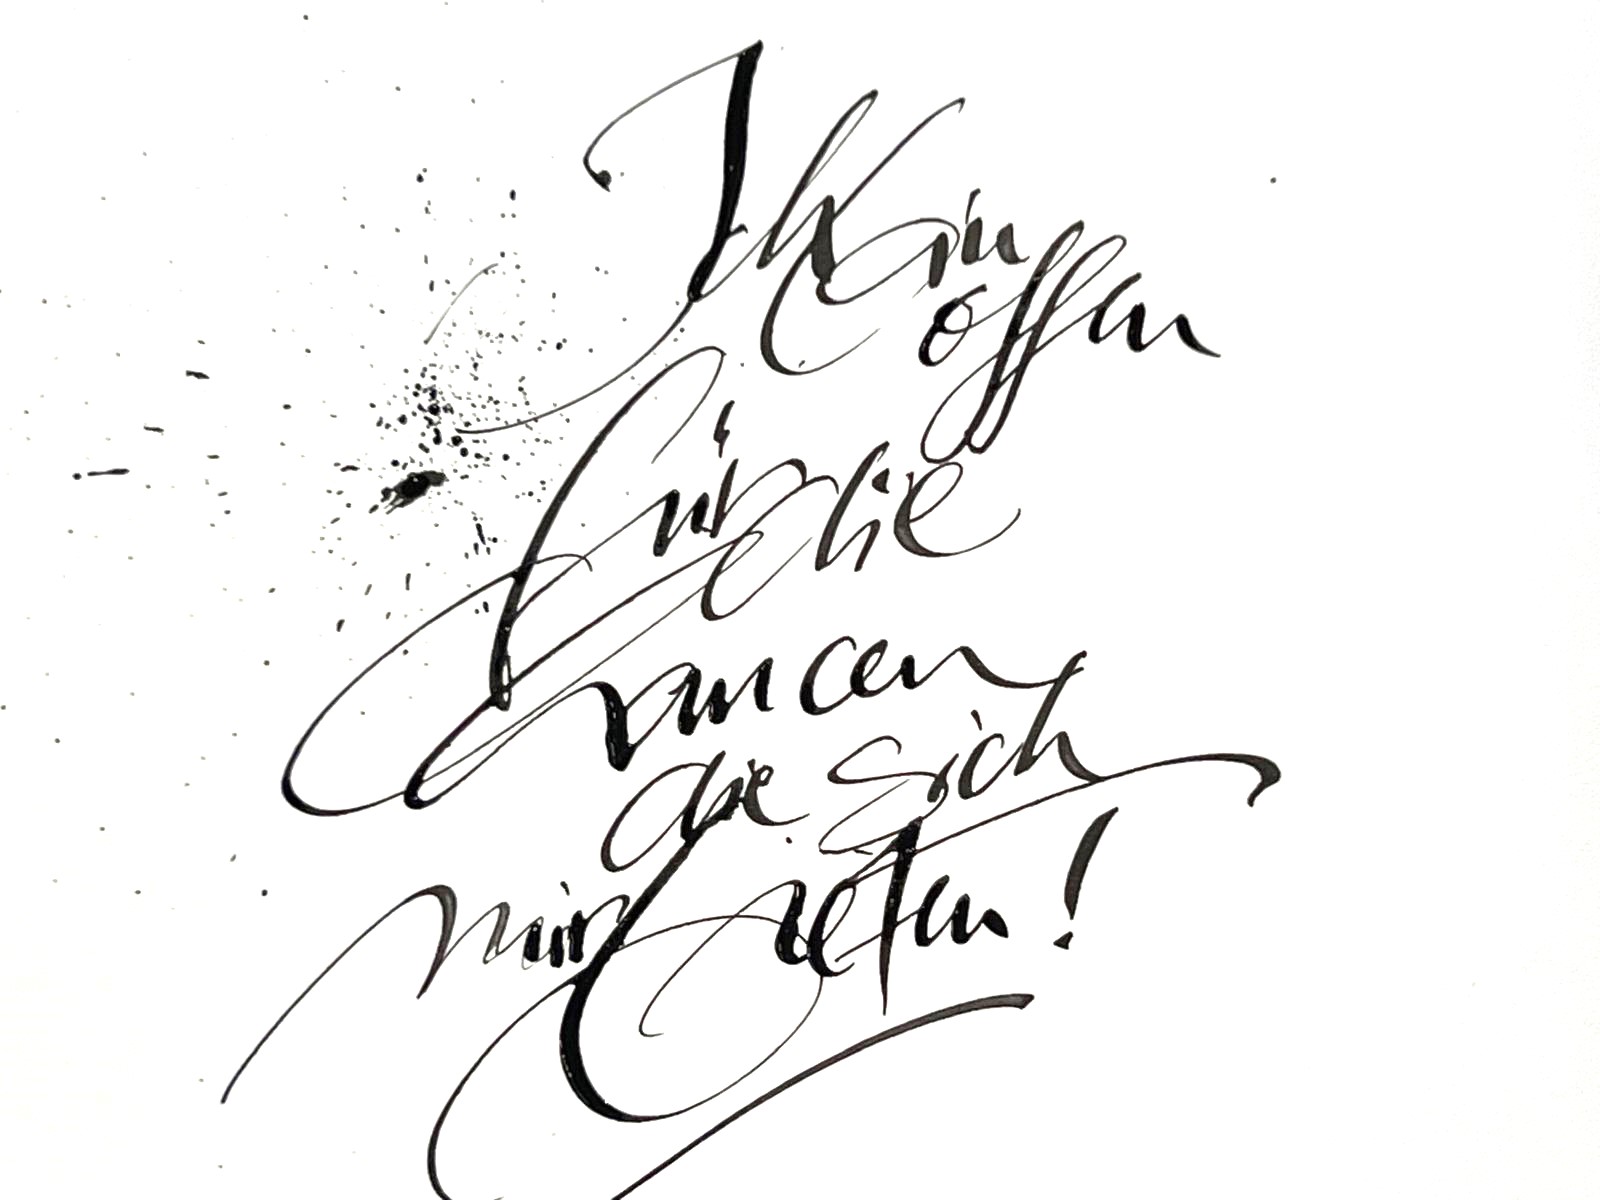 Ich bin
offen
für die
Chancen
die sich
mir bieten!